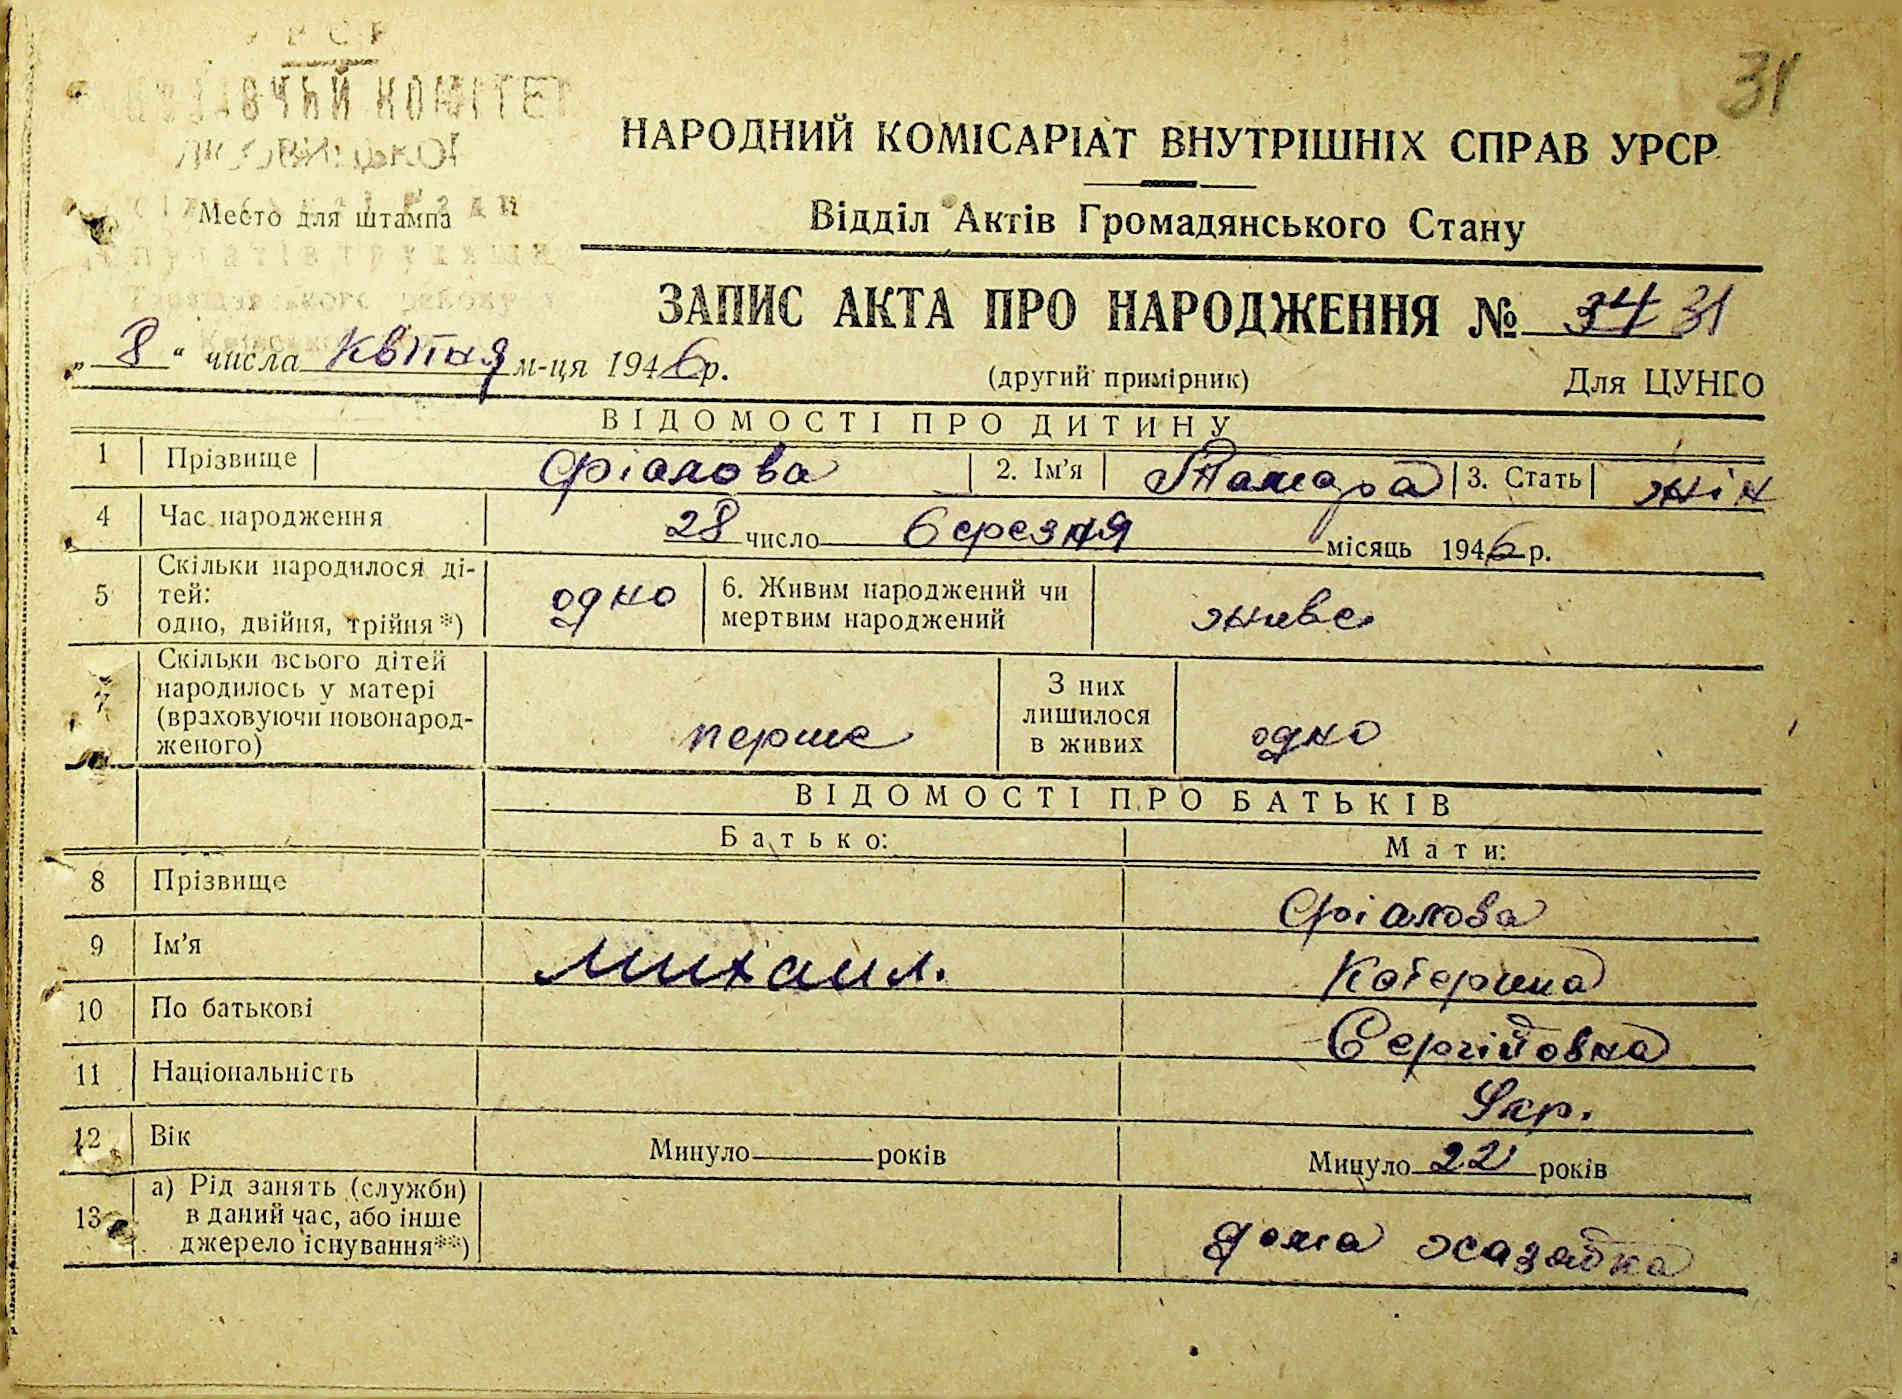 31
УРСР
КОМІТЕТ
НАРОДНИЙ КОМІСАРІАТ ВНУТРІШНІХ СПРАВ УРСР
Відділ Актів Громадянського Стану
Место для штампа
ЗАПИС АКТА ПРО НАРОДЖЕННЯ № 34 31
„8“ числа квітня м-ця 1946 р. (другий примірник) Для ЦУНГО
ВІДОМОСТІ ПРО ДИТИНУ
1 Прізвище Фіалова 2. Ім'я Тамара 3. Стать жін
4 Час народження 28 число березня місяць 1946 р.
5 Скільки народилося ді-
тей:
одно, двійня, трійня*) одно 6. Живим народжений чи
мертвим народжений живе
7 Скільки всього дітей
народилось у матері
(враховуючи новонарод-
женого) перше З них
лишилося
в живих одно
ВІДОМОСТІ ПРО БАТЬКІВ
Батько: Мати:
8 Прізвище Фіалова
9 Ім'я Михаил. Катерина
10 По батькові Сергійовна
11 Національність Укр.
12 Вік Минуло років Минуло 22 років
13 а) Рід занять (служби)
в даний час, або інше
джерело існування**) дома хазайка